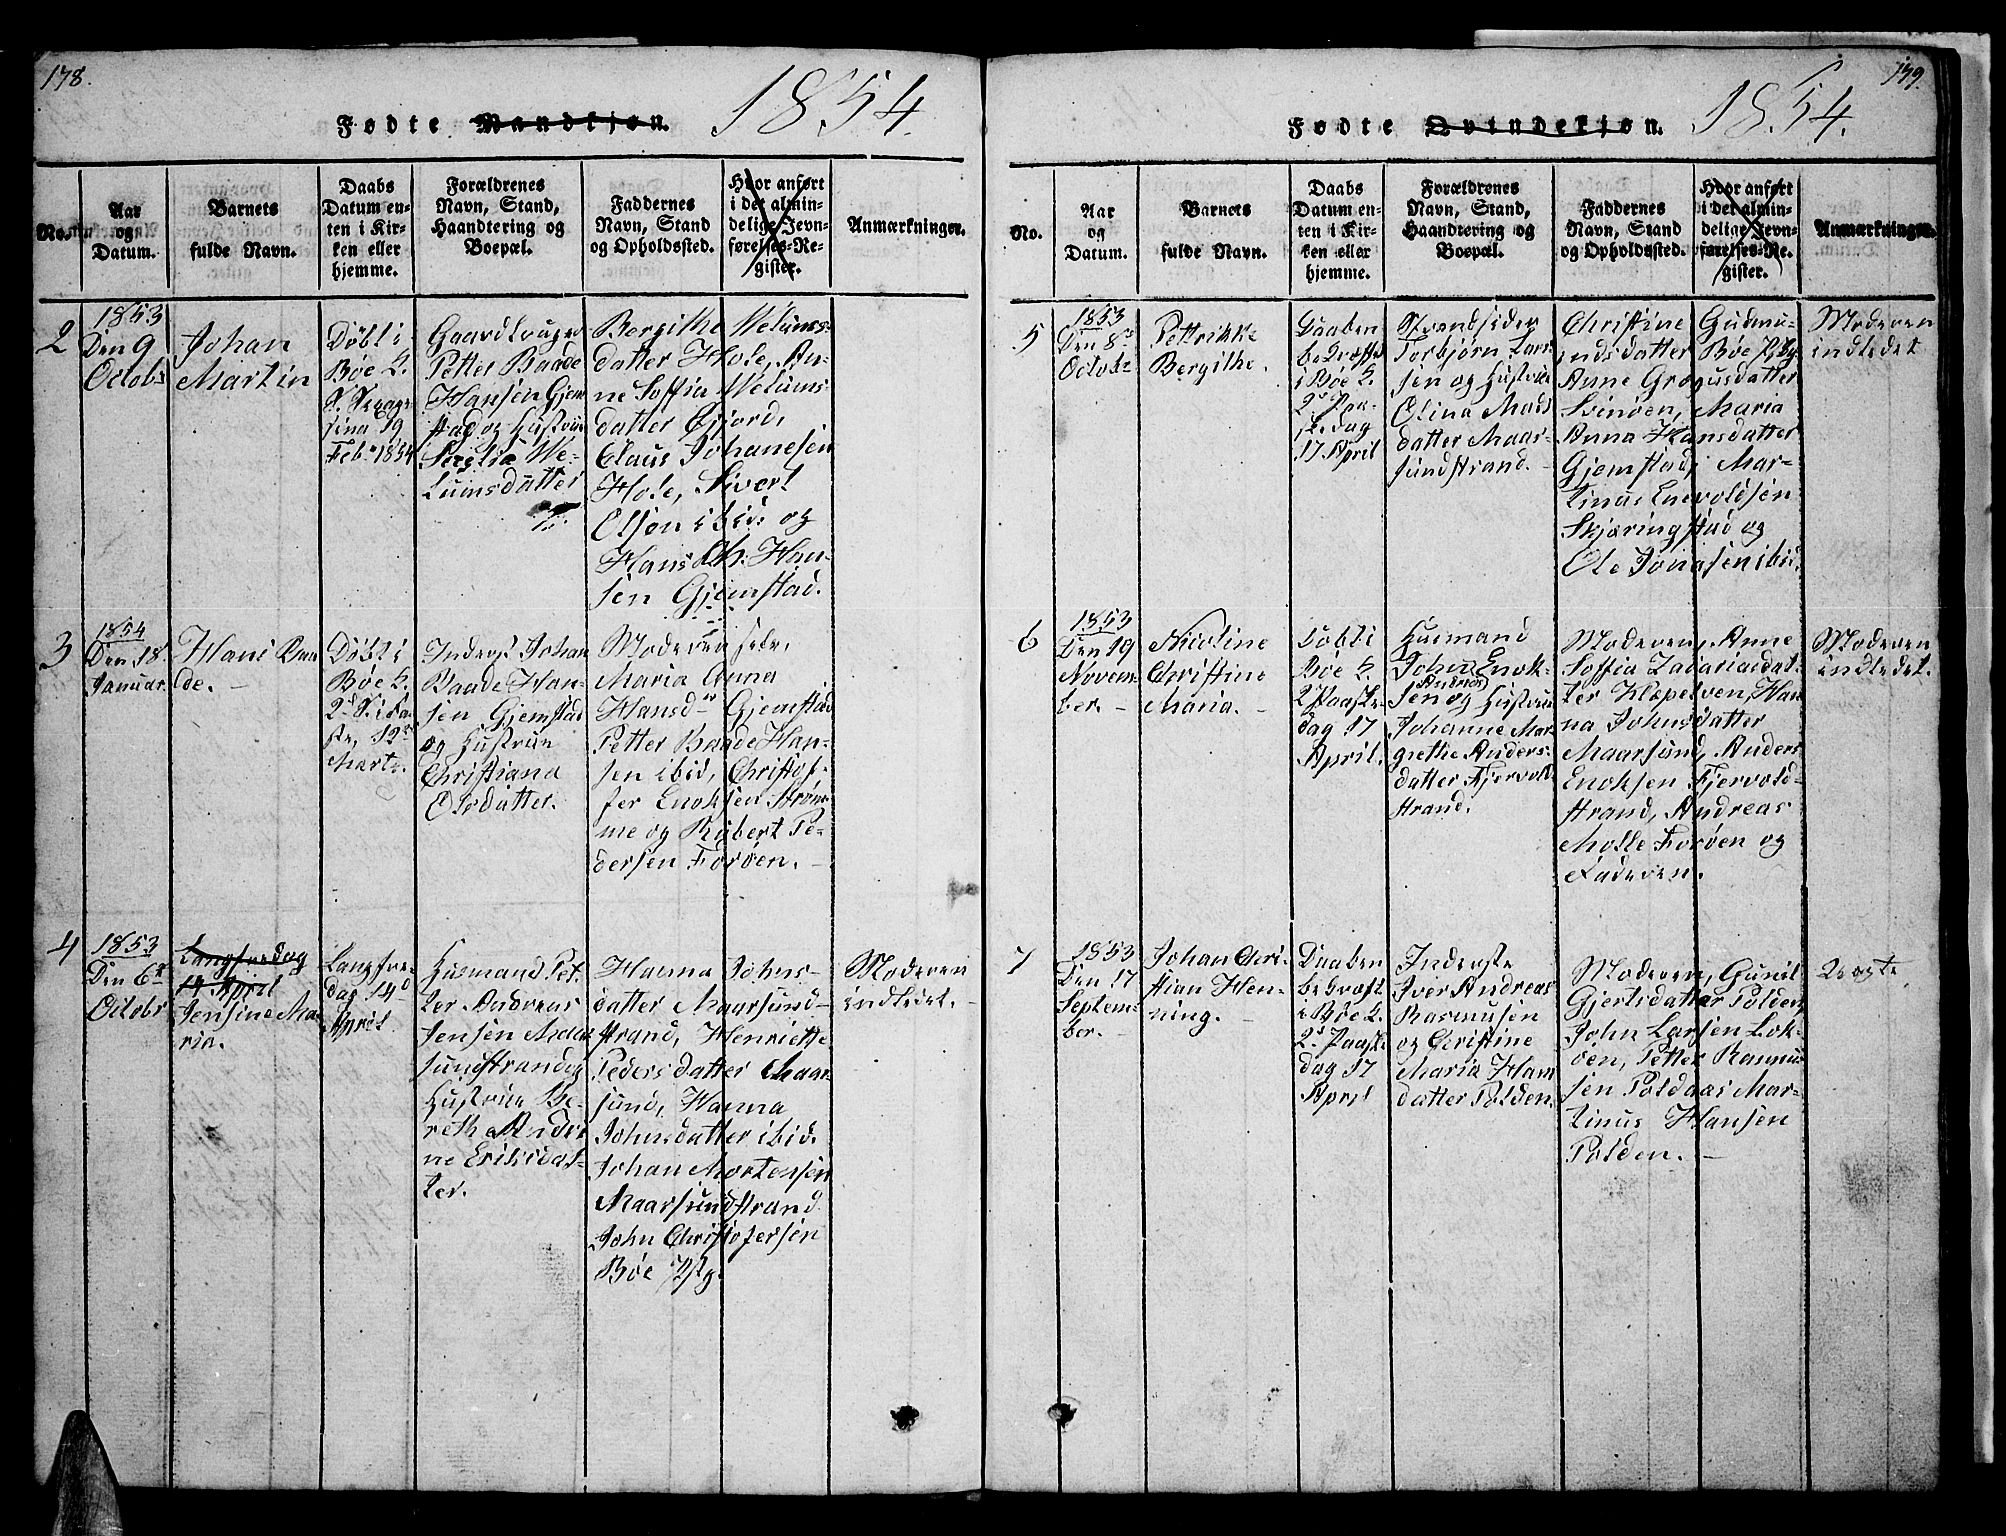 178.
Fødte Mandkjøn. 1854.
No.
Aar
og
Datum.
Barnets
fulde Navn.
Daabs
Datum en-
ten i Kir-
ken eller
hjemme.
Forældrenes
Navn, Stand,
Haandtering og
Boepæl.
Faddernes
Navn, Stand
og Opholdssted.
Hvor anført
i det almin-
delige Jevn-
førelses-Re-
gister.
Anmærkninger.
2
1853
Den 9
Octobr
Johan
Martin
Døbt i
Bøe K.
Febr 1854
Gaardbruger
Petter Baade
Hansen Gjem-
stad og Hustrue
We-
lumsdatter
Bergithe Welums-
datter Hole, An-
ne Soffia Welums-
datter Gfjord,
Claus Johanesen
Hole, Sivert
Olsen ibid: og
Hans Chr: Han-
sen Gjemstad.
3
1854
Den 18
Januar
Hans Baa-
de. -
Døbt i
Bøe K.
2' S. i Fa-
ste, 12te
Marts.
Inderst Johan
Baade Han-
sen Gjemstad
og Hustrue
Christiana
Olsdatter.
Moderen selv,
Maria Anna
Hansd'' Gjemstad
Petter Baade Han-
sen ibid, Christof-
fer Enoksen Strøm-
me og Rubert Pe-
dersen Forøen. -
4
1853
Den 6te
Octobr
Langfredag
14 April
Jensine Ma-
ria.
Langfre-
dag 14d
April.
Husmand Pet-
ter Andreas
Jensen Maar-
sundstrand og
Hustrue Be-
reth Andri-
ne Eriksdat-
ter.
Hanna Johns-
datter Maarsund-
strand, Henriette
Pedersdatter Maar-
sund, Hanna
Johnsdatter ibid.
Johan Mortensen
Maarsundstrand
John Christofersen
Bøe Pstg.
Moderen
indledet. -
179.
Fødte Qvindekjøn. 1854.
No.
Aar
og
Datum.
Barnets
fulde Navn.
Daabs
Datum en-
ten i Kir-
ken eller
hjemme.
Forældrenes
Navn, Stand,
Haandtering og
Boepæl.
Faddernes
Navn, Stand
og Opholdssted.
Hvor anført
i det almin-
delige Jevn-
førelses-Re-
gister.
Anmærkninger.
5
1853
Den 8de
Octobr
Pettrikke
Bergithe.
Daaben
bekræftet
i Bøe K.
2' Paa-
ske dag
17 April
Strandsidder
Torbjørn Lar-
sen og Hustrue
Elina Mads-
datter Maar-
sundstrand. -
Christine Gudmu-
ndsdatter Bøe Pstg.
Anne Gregusdatter
Svinøen, Maria
Anna Hansdatter
Gjemstad, Mar-
tinus Enevoldsen
Skjæringstad og
Ole Jonasen ibid.
Moderen
indledet
6
1853
Den 19
Novem-
ber. -
Nicoline
Christine
Maria. -
Døbt i
Bøe K.
2' Paaske-
dag 17
April.
Husmand
Johan Enok-
Andreas
sen og Hustrue
Johanne Mar-
grethe Anders-
datter Fjervold-
strand.
Moderen, Anne
Soffia Zakariasdat-
ter Klæpelven, Han-
na Johnsdatter
Maarsund, Anders
Enoksen Fjervold-
strand, Andreas
Molle Forøen og
Faderen.
Moderen
indledet.
7
1853
Den 17
Septem-
ber. -
Johan Chri-
stian Hen-
ning.
Daaben
bekræft.
i Bøe K.
2' Paaske
dag 17
April
Inderste
Iver Andreas
Rasmusen
og Christine
Maria Hans-
datter Polden.
Moderen, Gunil
Gjertsdatter Polden,
John Larsen Lok-
øen, Petter Rasmu-
sen Poldaas Mar-
tinus Hansen
Polden. -